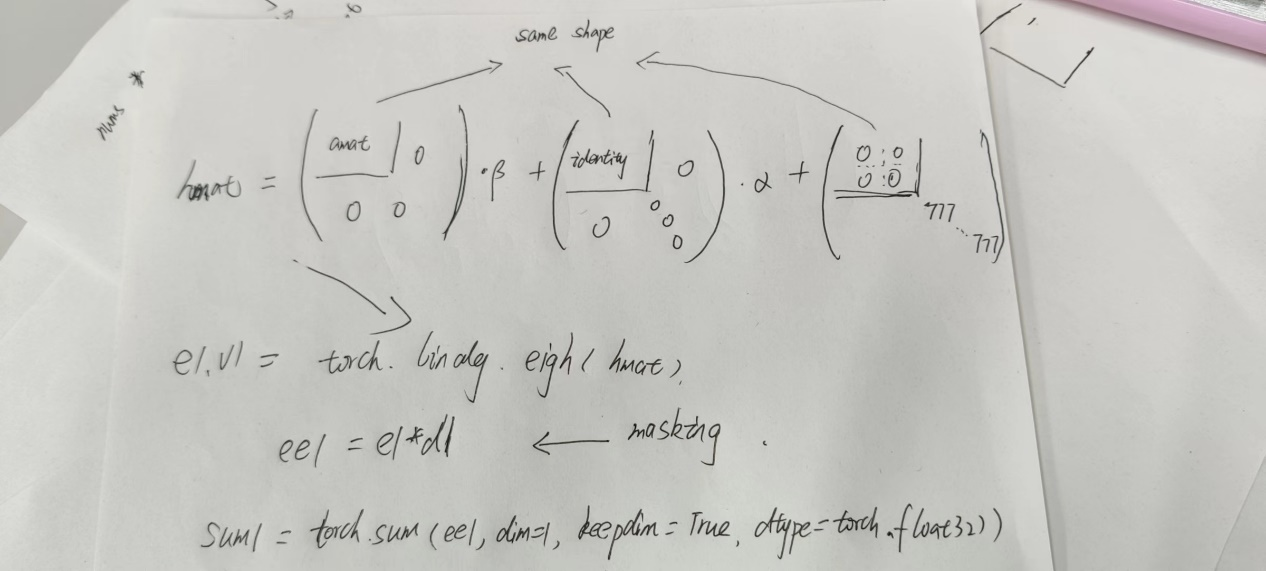 same shape
hmat = ( amat | 0 0 0 ) · β + ( identity | 0 0 0 0 0 ) · α + ( 0 0 0 0 777 ... 777 )
e1, v1 = torch. linalg. eigh( hmat ),
ee1 = e1*d1 ← masking .
sum1 = torch.sum (ee1, dim=1, keepdim = True, dtype=torch.float32))
nums *